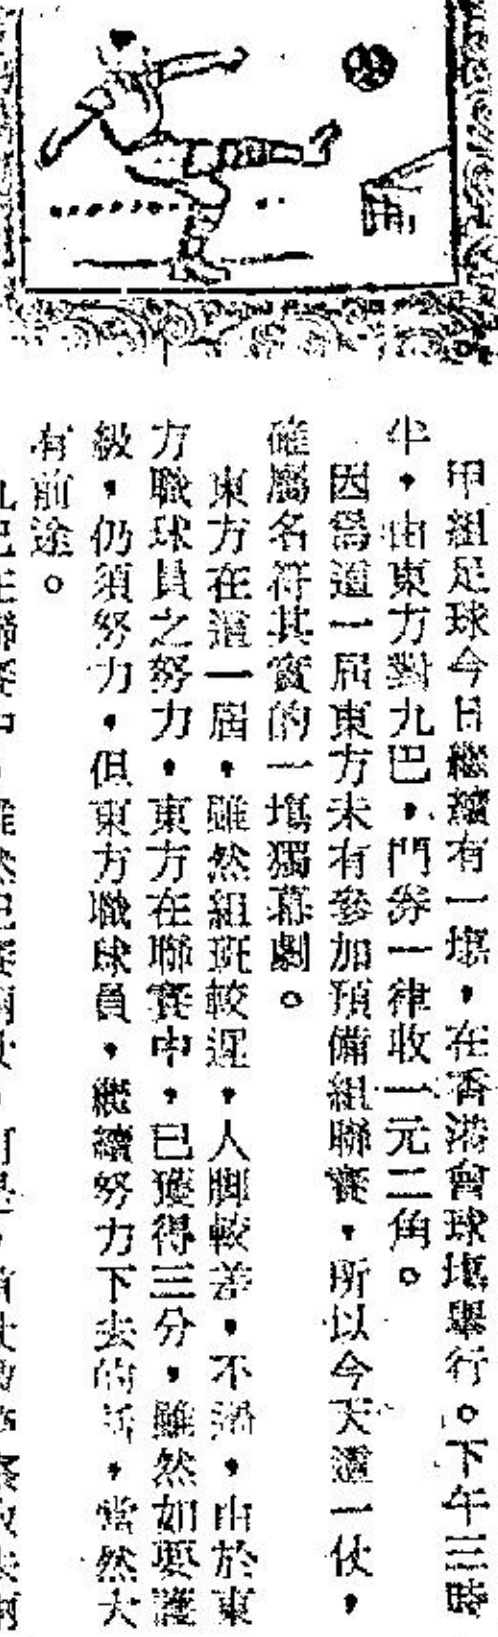 甲組足球今日繼續有一塲,在香港會球塲舉行。下午三時
半,由東方對九巴,門券一律收一元二角。
因爲這一屆東方未有參加預備組聯賽,所以今天這一仗,
確屬名符其實的一塲獨幕劇。
東方在這一屆,雖然組班較遲,人脚較差,不過,由於東
方職球員之努力,東方在聯賽中,已獲得三分,雖然如要護
級,仍須努力,但東方職球員,繼續努力下去的話,當然大
有前途。